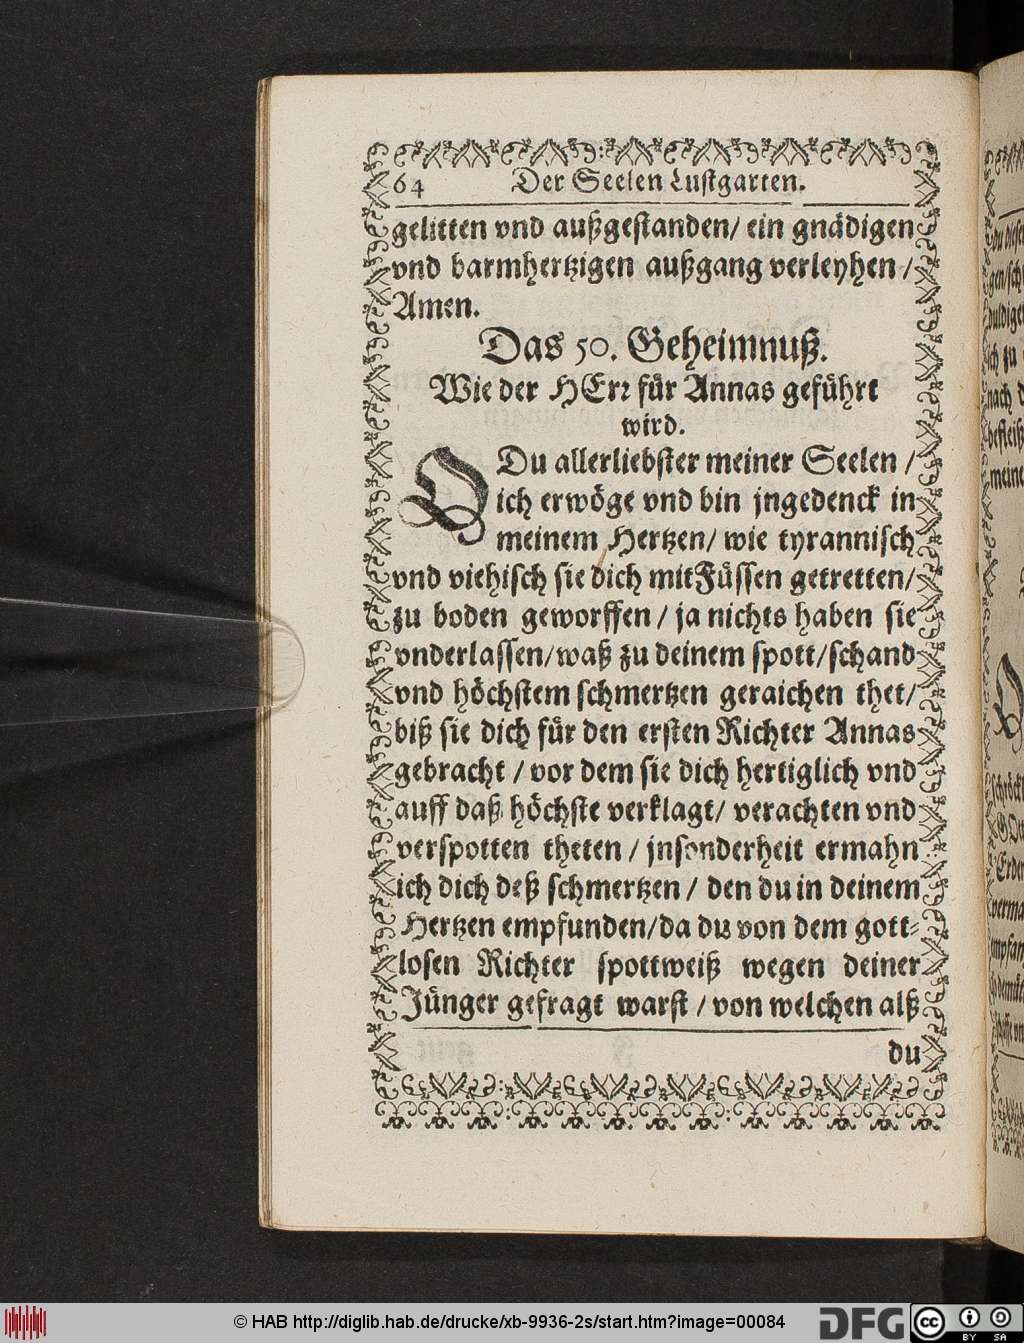 64 Der Seelen Lustgarten.
gelitten vnd außgestanden/ ein gnädigen
vnd barmhertzigen außgang verleyhen /
Amen.
Das 50. Geheimnuß.
Wie der HErr für Annas geführt
wird.
O Du allerliebster meiner Seelen /
ich erwöge vnd bin jngedenck in
meinem Hertzen/ wie tyrannisch
vnd viehisch sie dich mit Füssen getretten/
zu boden geworffen / ja nichts haben sie
vnderlassen/ waß zu deinem spott/ schand
vnd höchstem schmertzen geraichen thet/
biß sie dich für den ersten Richter Annas
gebracht / vor dem sie dich hertiglich vnd
auff daß höchste verklagt/ verachten vnd
verspotten theten / jnsonderheit ermahn
ich dich deß schmertzen / den du in deinem
Hertzen empfunden/ da du von dem gott-
losen Richter spottweiß wegen deiner
Jünger gefragt warst / von welchen alß
du
© HAB http://diglib.hab.de/drucke/xb-9936-2s/start.htm?image=00084
DFG
cc BY SA